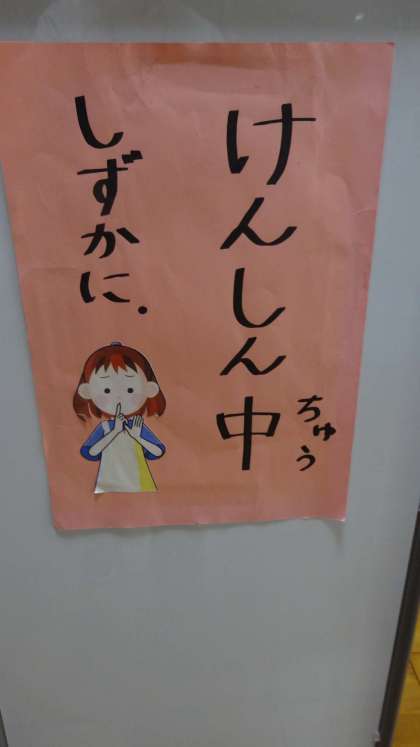 けんしん中
ちゅう
しずかに.